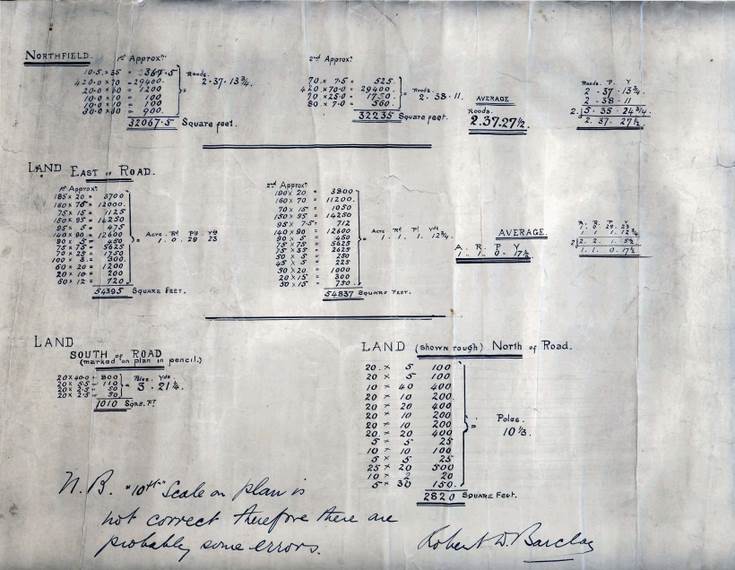 NORTHFIELD.
1st Approxn.
10.5 × 35 = 367.5
420.0 × 70 = 29400.
20.0 × 60 = 1200
10.0 × 10 = 100
10.0 × 10 = 100
30.0 × 30 = 900.
32067.5 Square feet.
Roods.
2.37.13¾.
2nd Approxn.
70 × 7.5 = 525.
420 × 70.0 = 29400.
70 × 25.0 = 1750.
80 × 7.0 = 560.
32235 Square feet.
Roods.
2.38.11.
AVERAGE
Roods.
2.37.27½.
Roods. P. Y
2.37.13¾.
2.38.11
2. 5.35.24¾
2.37.27½.
LAND EAST OF ROAD.
1st Approxn.
185 × 20 = 3700
160 × 75 = 12000.
75 × 15 = 1125
150 × 95 = 14250
95 × 5 = 475
140 × 90 = 12600
90 × 5 = 450
75 × 75 = 5625
70 × 25 = 1750
100 × 3 = 300
60 × 20 = 1200
20 × 10 = 200
60 × 12 = 720
54395 SQUARE FEET.
Acre. Rd Ps Yds
1. 0. 29 23
2nd Approxn.
190 × 20 = 3800
160 × 70 = 11200.
70 × 15 = 1050
150 × 95 = 14250
95 × 7.5 = 712
140 × 90 = 12600
90 × 5 = 450
75 × 75 = 5625
75 × 35 = 2625
50 × 5 = 250
45 × 5 = 225
50 × 20 = 1000
20 × 15 = 300
50 × 15 = 750.
54837 SQUARE FEET.
Acre. Rd. Pl. Yds
1. 1. 1. 12¾
AVERAGE.
A. R. P. Y
1. 1. 0. 17½
A. R. P. Y
1. 0. 29. 23
1. 1. 1. 12¾
1. 1. 0. 17½
LAND
SOUTH of ROAD
(marked on plan in pencil.)
20 × 40.0 = 800
20 × 5.5 = 110
20 × 2.5 = 50
20 × 2.5 = 50
1010 SQRS. FT.
Poles. Yds
3. 21¼.
LAND (shown rough) North of Road.
20 × 5 100
20 × 5 100
10 × 40 400
20 × 10 200.
20 × 20 400
20 × 10 200
20 × 10 200
20 × 20 400
5 × 5 25
10 × 10 100
5 × 5 25
25 × 20 500
10 × 2 20
5 × 30 150.
2820 SQUARE FEET.
Poles.
10⅓.
N.B. "10ft" Scale on plan is
not correct therefore there are
probably some errors.
Robert W. Barclay